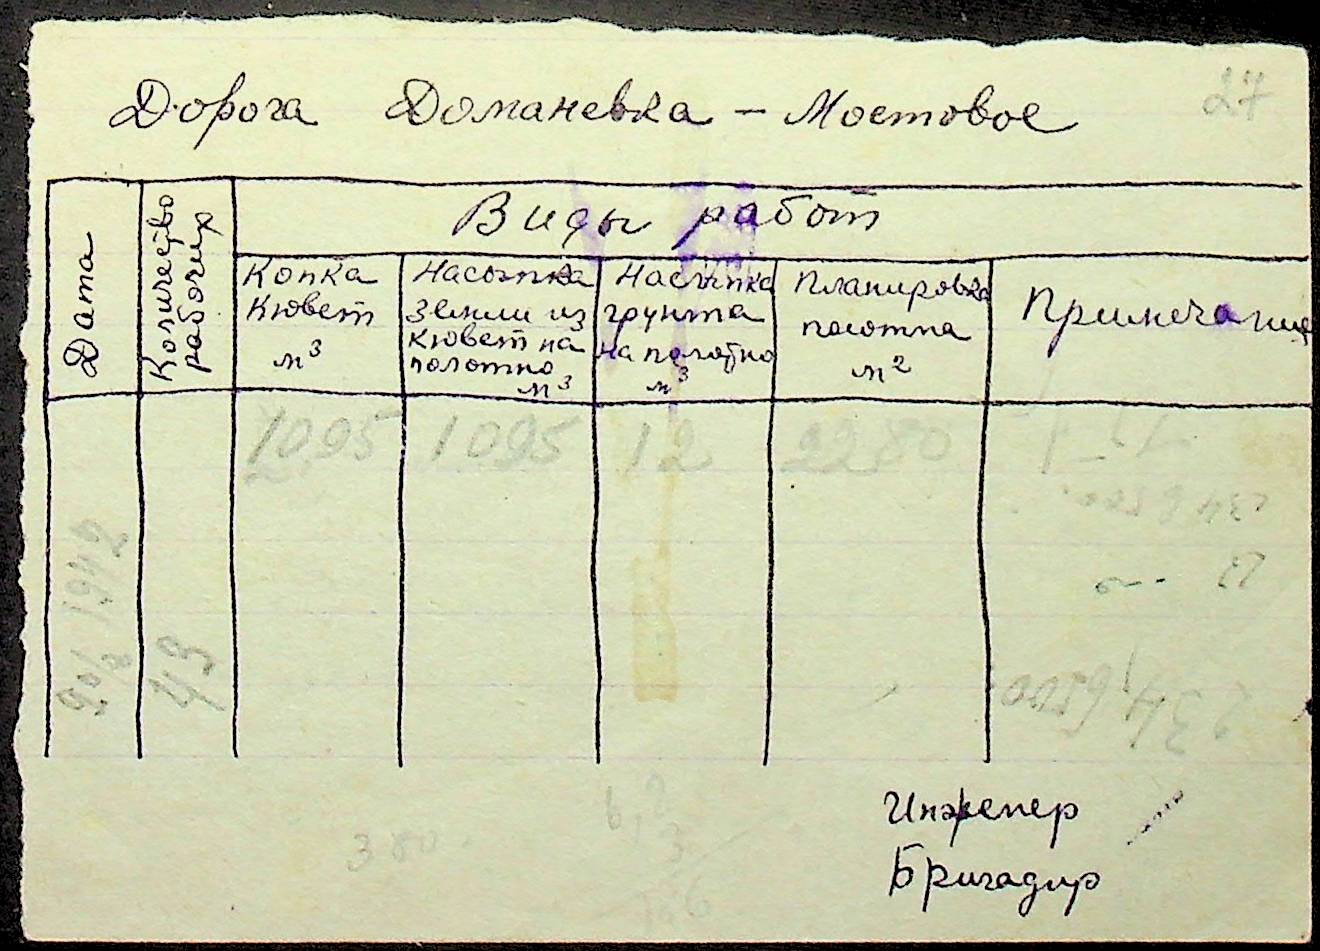 27
Дорога Доманевка – Мостовое
Дата
Количество
рабочих
Виды работ
Копка
Кювет
м³
Насыпка
земли из
Кювет на
полотно
м³
Насыпка
грунта
на полотно
м³
Планировка
полотна
м²
Примечание
1095
1095
12
2280
1942
43
380
Инженер
Бригадир